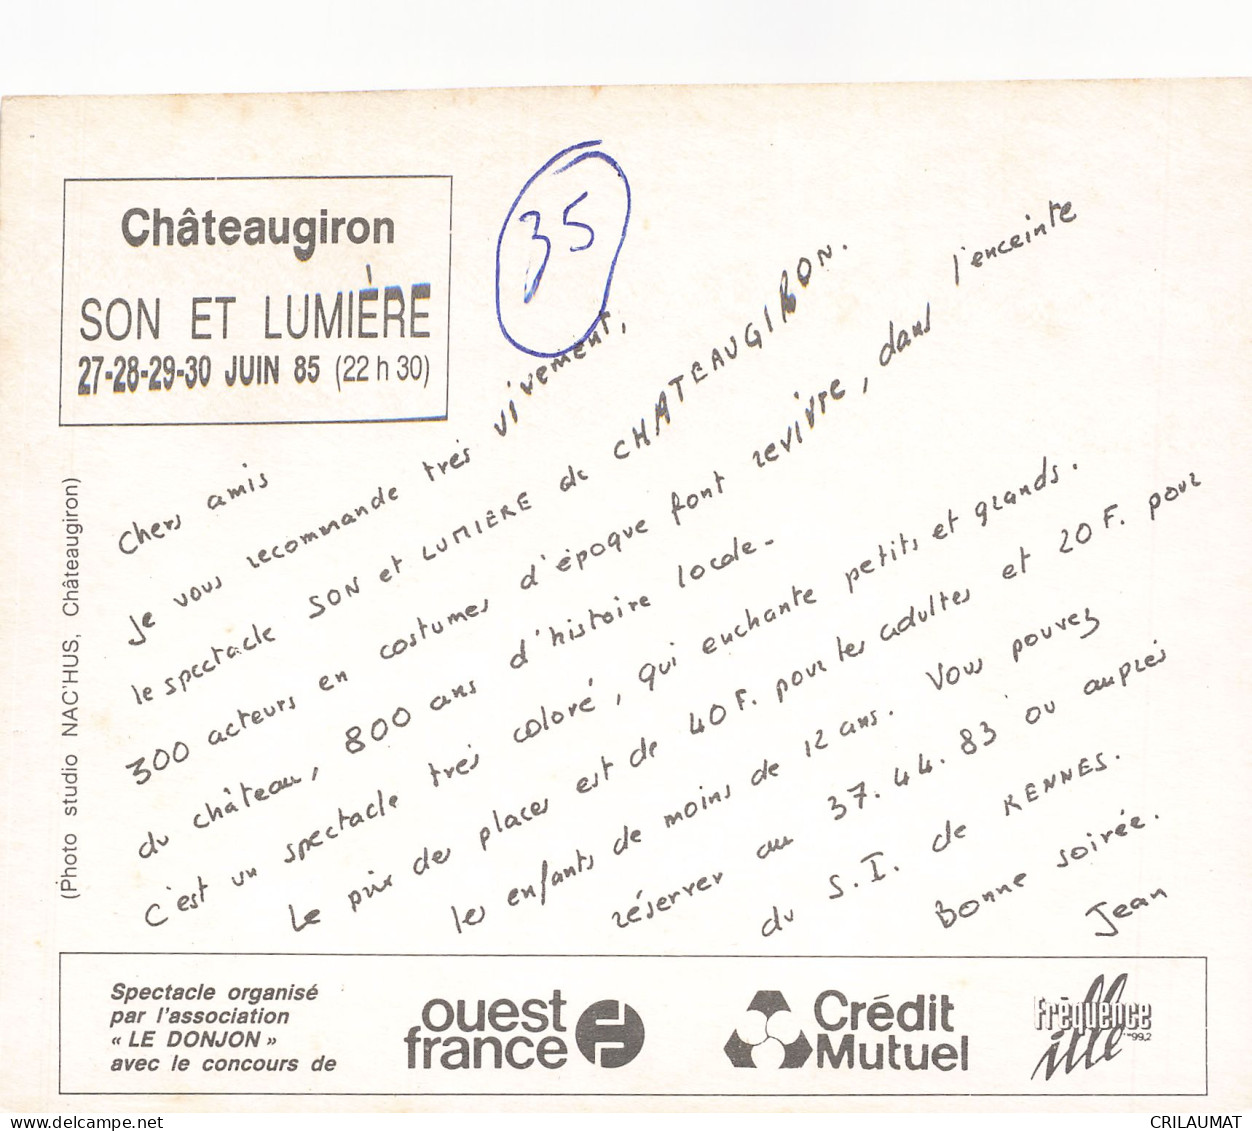 Châteaugiron
SON ET LUMIÈRE
27-28-29-30 JUIN 85 (22 h 30)
35
(Photo studio NAC'HUS, Châteaugiron)
Chers amis
Je vous recommande très vivement,
le spectacle SON et LUMIÈRE de CHATEAUGIRON.
300 acteurs en costumes d'époque font revivre, dans l'enceinte
du château, 800 ans d'histoire locale-
C'est un spectacle très coloré, qui enchante petits et grands.
Le prix des places est de 40 F. pour les adultes et 20 F. pour
les enfants de moins de 12 ans. Vous pouvez
réserver au 37.44.83 ou auprès
du S.I. de RENNES.
Bonne soirée.
Jean
Spectacle organisé
par l'association
« LE DONJON »
avec le concours de
ouest
france
Crédit
Mutuel
Fréquence
ille
99,2
www.delcampe.net
CRILAUMAT